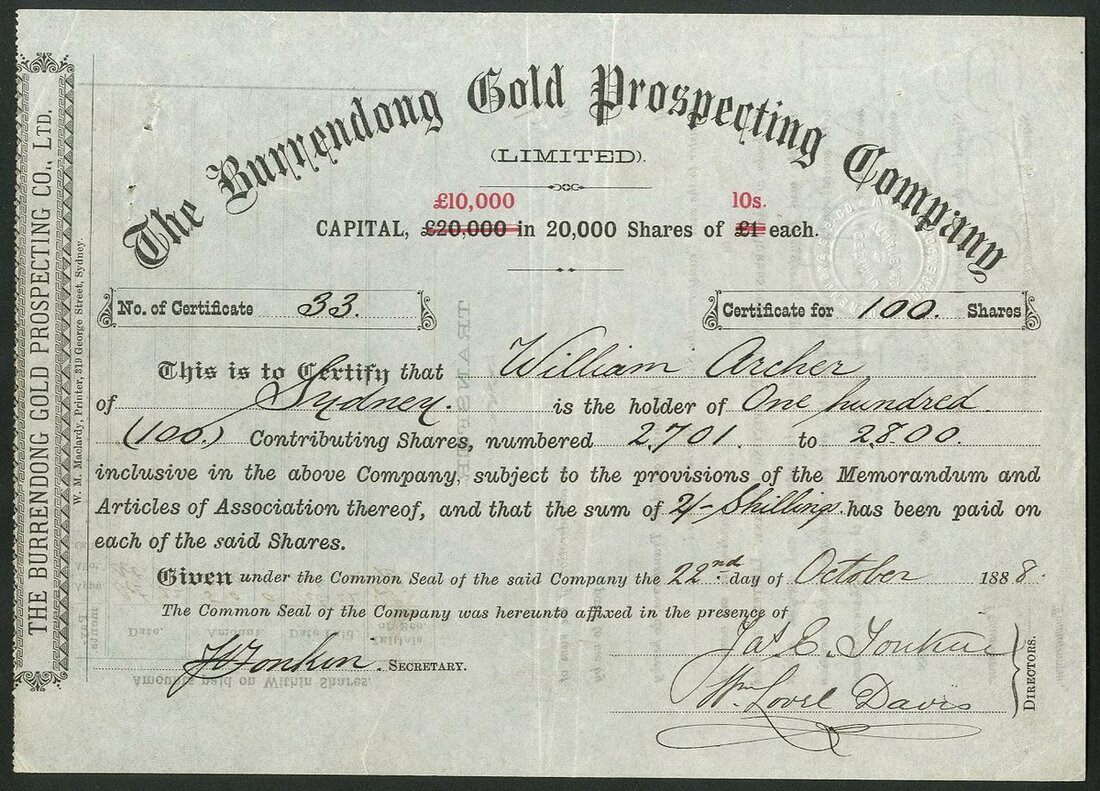 The Burrendong Gold Prospecting Company
(LIMITED).
£10,000 10s.
CAPITAL, £20,000 in 20,000 Shares of £1 each.
No. of Certificate 33.
Certificate for 100. Shares
This is to Certify that William Archer
of Sydney. is the holder of One hundred.
(100.) Contributing Shares, numbered 2701. to 2800.
inclusive in the above Company, subject to the provisions of the Memorandum and
Articles of Association thereof, and that the sum of 2/- Shillings. has been paid on
each of the said Shares.
Given under the Common Seal of the said Company the 22nd. day of October 1888.
The Common Seal of the Company was hereunto affixed in the presence of
Jas. E. Tonkin
Tonkin. SECRETARY.
Wm. Lovel Davis
DIRECTORS.
THE BURRENDONG GOLD PROSPECTING CO., LTD.
W. M. Maclardy, Printer, 319 George Street, Sydney.
Date. Amount. Date Paid
Amounts paid on Within Shares.
TRANSFER